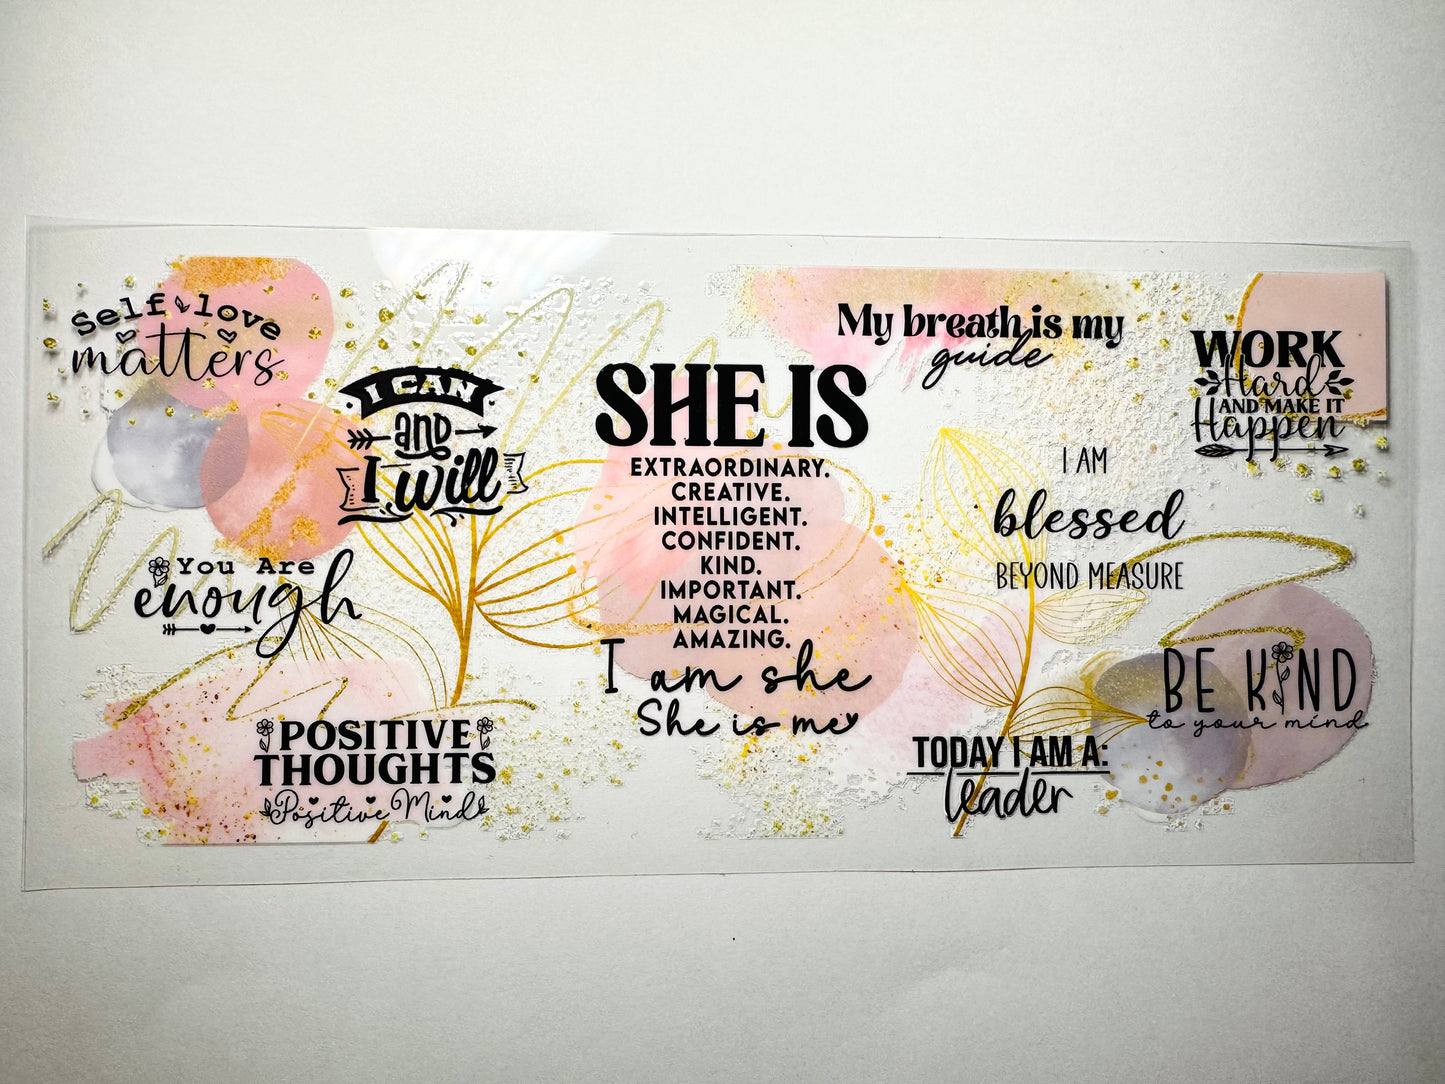 Self love
matters
I CAN
and
I will
You Are
enough
POSITIVE
THOUGHTS
Positive Mind
SHE IS
EXTRAORDINARY.
CREATIVE.
INTELLIGENT.
CONFIDENT.
KIND.
IMPORTANT.
MAGICAL.
AMAZING.
I am she
She is me
My breath is my
guide
WORK
Hard
AND MAKE IT
Happen
I AM
blessed
BEYOND MEASURE
BE KIND
to your mind
TODAY I AM A:
leader